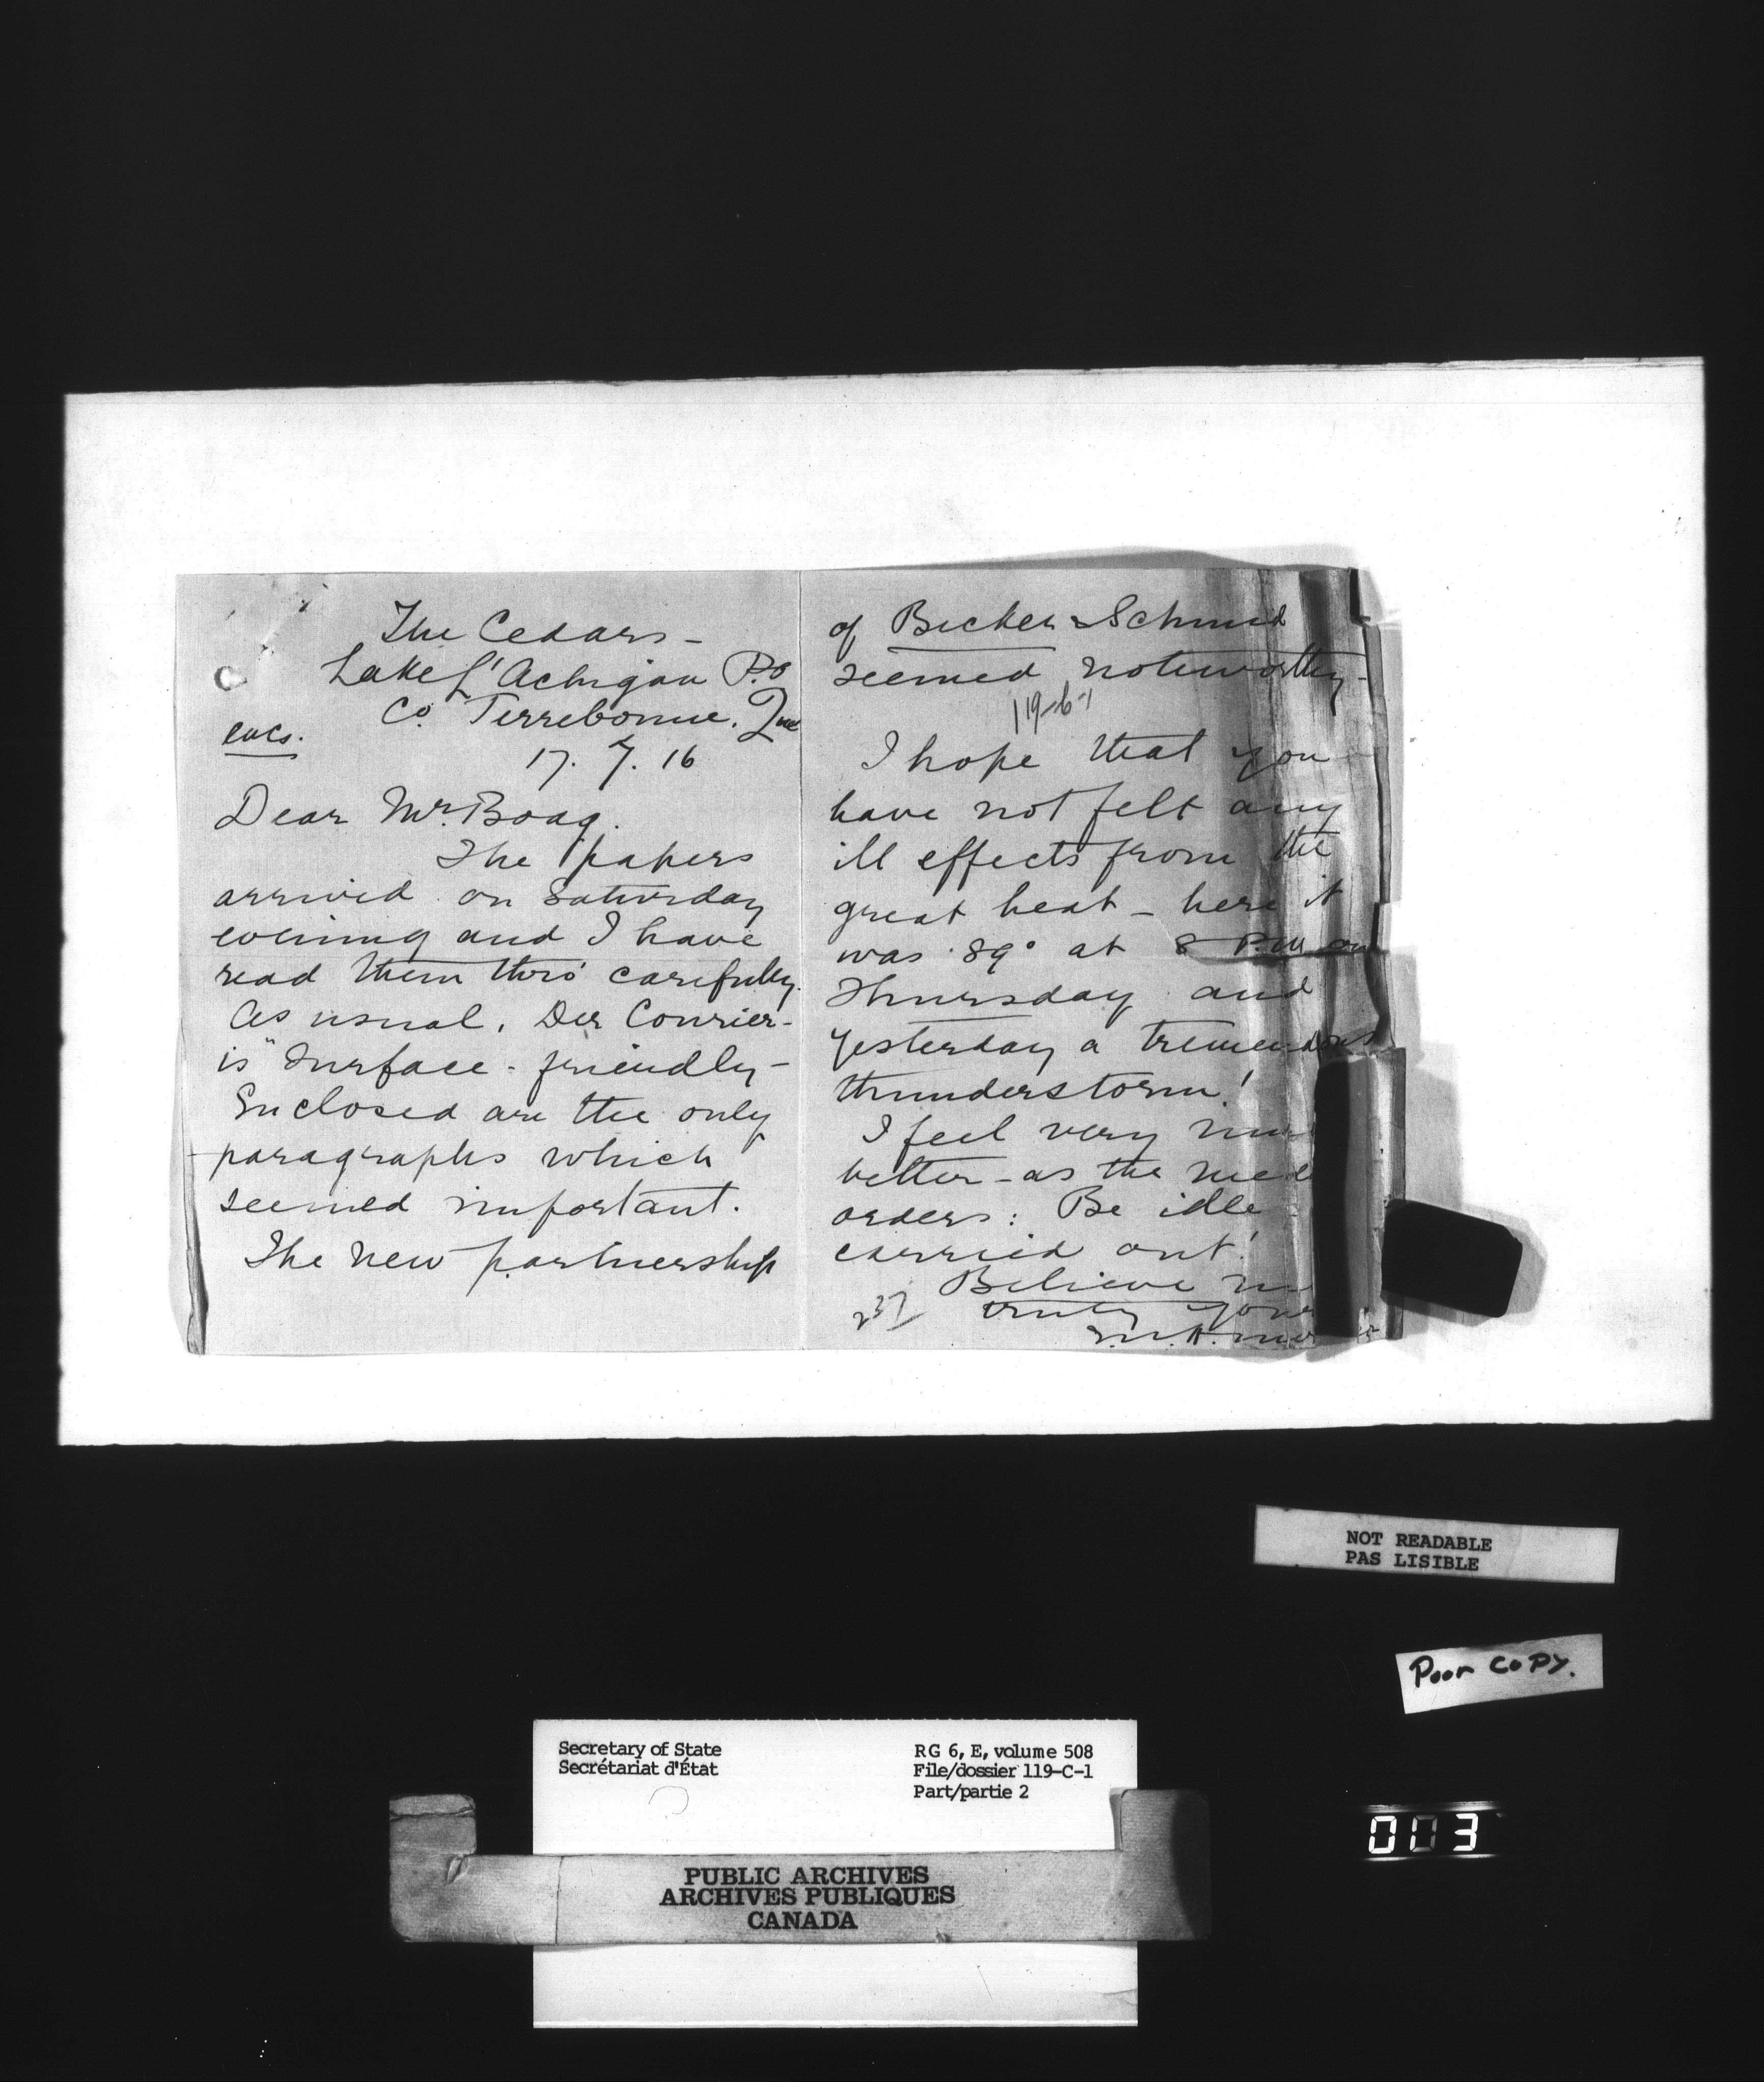 The Cedars -
Lake L'Achigan P.O
Co. Terrebonne. Que
encs.
17. 7. 16
Dear Mr. Boag.
The papers
arrived on Saturday
evening and I have
read them thro' carefully.
As usual, Der Courier -
is "surface - friendly -
Enclosed are the only
paragraphs which
seemed important.
The new partnership
of Becker & Schmid
seemed noteworthy -
I hope that you
have not felt any
ill effects from the
great heat - here it
was 89° at 8 P.M. on
Thursday and
yesterday a tremendous
thunderstorm!
I feel very
better - as the med
orders: Be idle
carried out!
Believe
truly
237
NOT READABLE
PAS LISIBLE
Poor COPY.
Secretary of State
Secrétariat d'État
RG 6, E, volume 508
File/dossier 119-C-1
Part/partie 2
PUBLIC ARCHIVES
ARCHIVES PUBLIQUES
CANADA
003